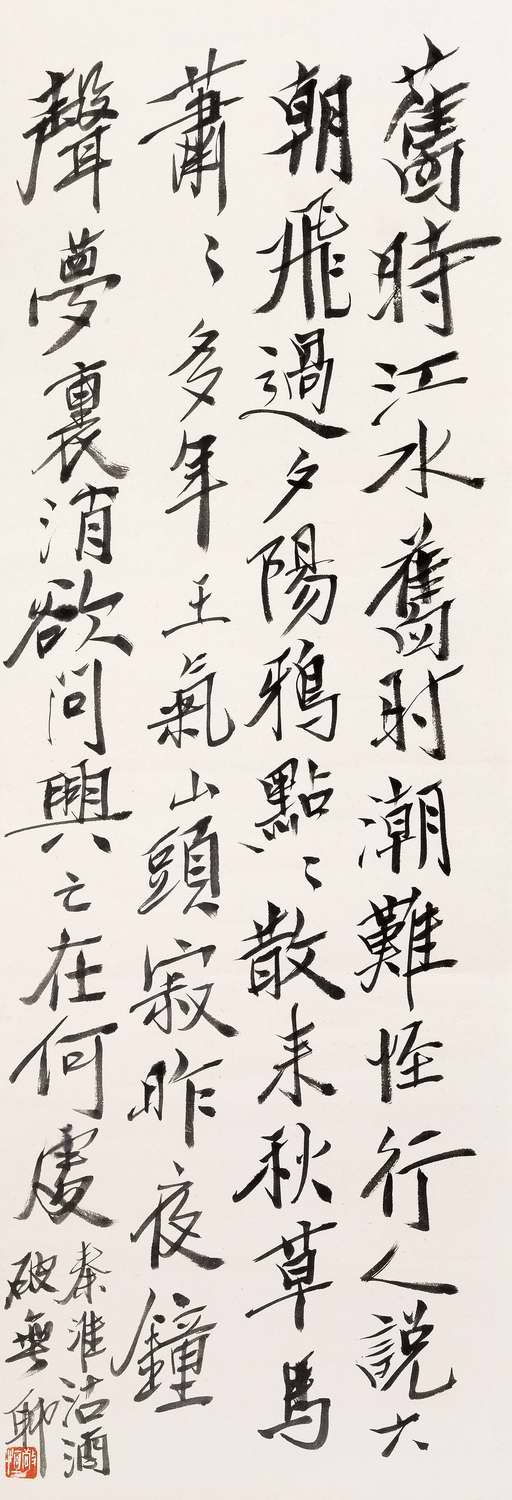 舊時江水舊时潮難怪行人說六
朝飛過夕陽鴉點〻散來秋草馬
蕭〻多年王氣山頭寂昨夜鐘
聲夢裏消欲問興亡在何處
秦淮沽酒
破無聊